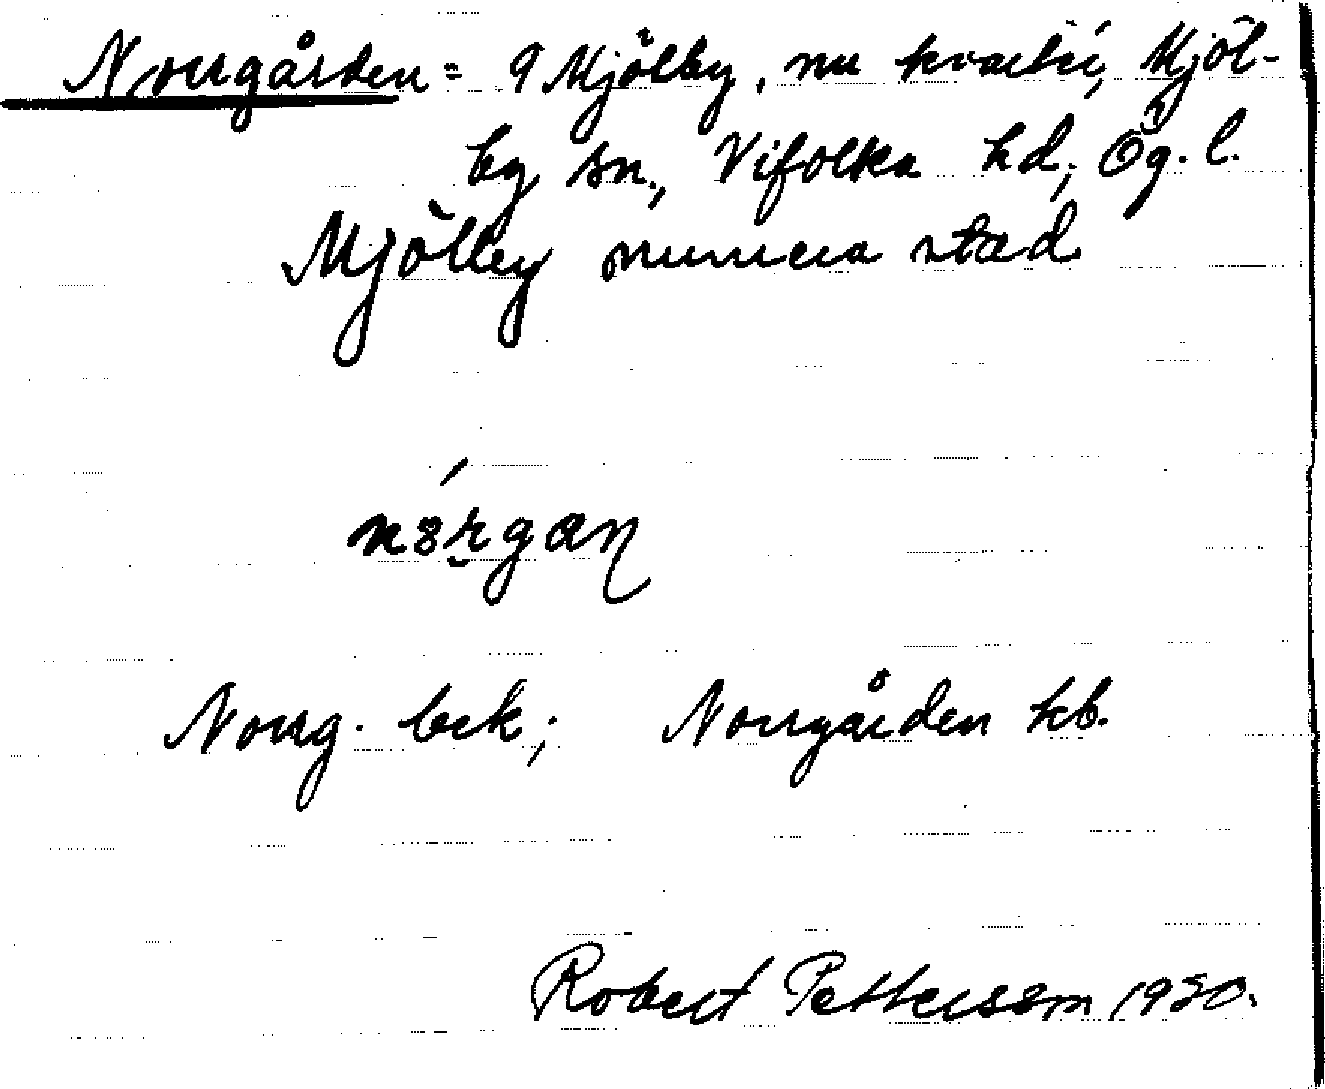 Norrgården = 9 Mjölby, nu kvarter i Mjöl-
by sn., Vifolka hd, Ög. l.
Mjölby numera stad
Norrg. bek; Norrgården kb.
Robert Pettersson 1930.